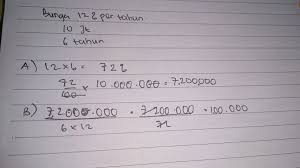 Bunga 12% per tahun
10 Jt
6 tahun
A) 12 x 6 = 72%
72/100 x 10.000.000 = 7.200.000
B) 7.200.000 / 6 x 12 = 7.200.000 / 72 = 100.000